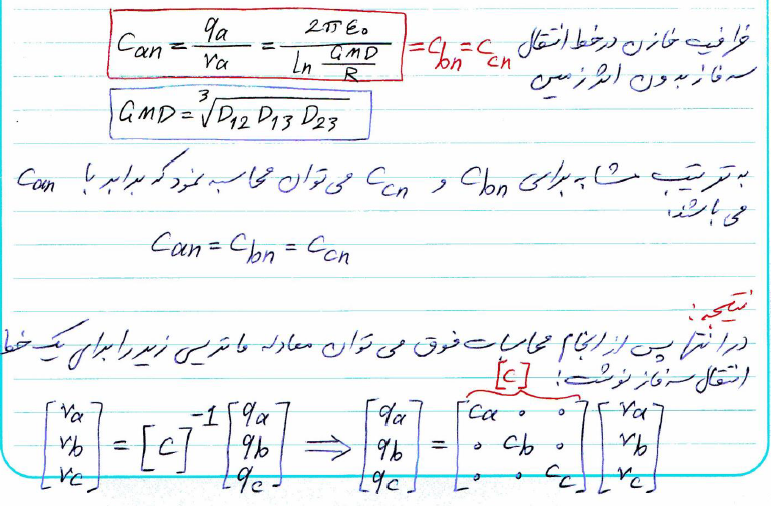 Can = qa / va = 2πε₀ / ln (GMD / R) = Cbn = Ccn ظرفیت خازن در خط انتقال
سه فاز بدون اثر زمین
GMD = ∛(D12 D13 D23)
به ترتیب مشابه برای Cbn و Ccn می توان محاسبه نمود که برابر با Can
می باشد.
Can = Cbn = Ccn
نتیجه:
در انتها پس از انجام محاسبات فوق می توان معادله ماتریسی زیر را برای یک خط
انتقال سه فاز نوشت: [C]
[va vb vc] = [C]⁻¹ [qa qb qc] ⟹ [qa qb qc] = [Ca 0 0 ; 0 Cb 0 ; 0 0 Cc] [va vb vc]